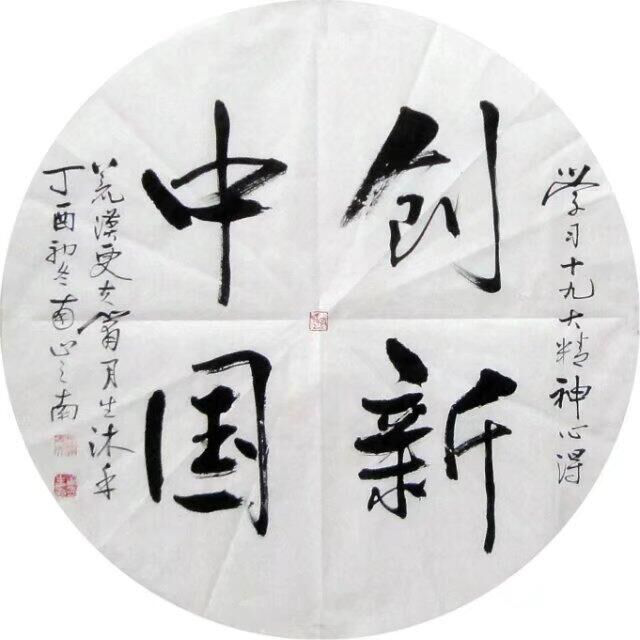 学习十九大精神心得
创新
中国
荒漠更夫笛月生沐手
丁酉初冬南山之南